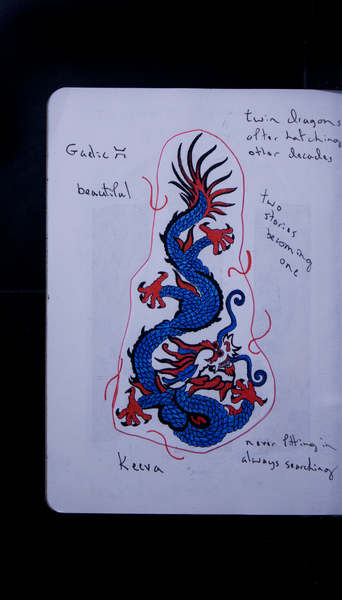 twin dragons
after hatching
other decades
Gaelic ♊
beautiful
two
stories
becoming
one
never fitting in
always searching
Keeva